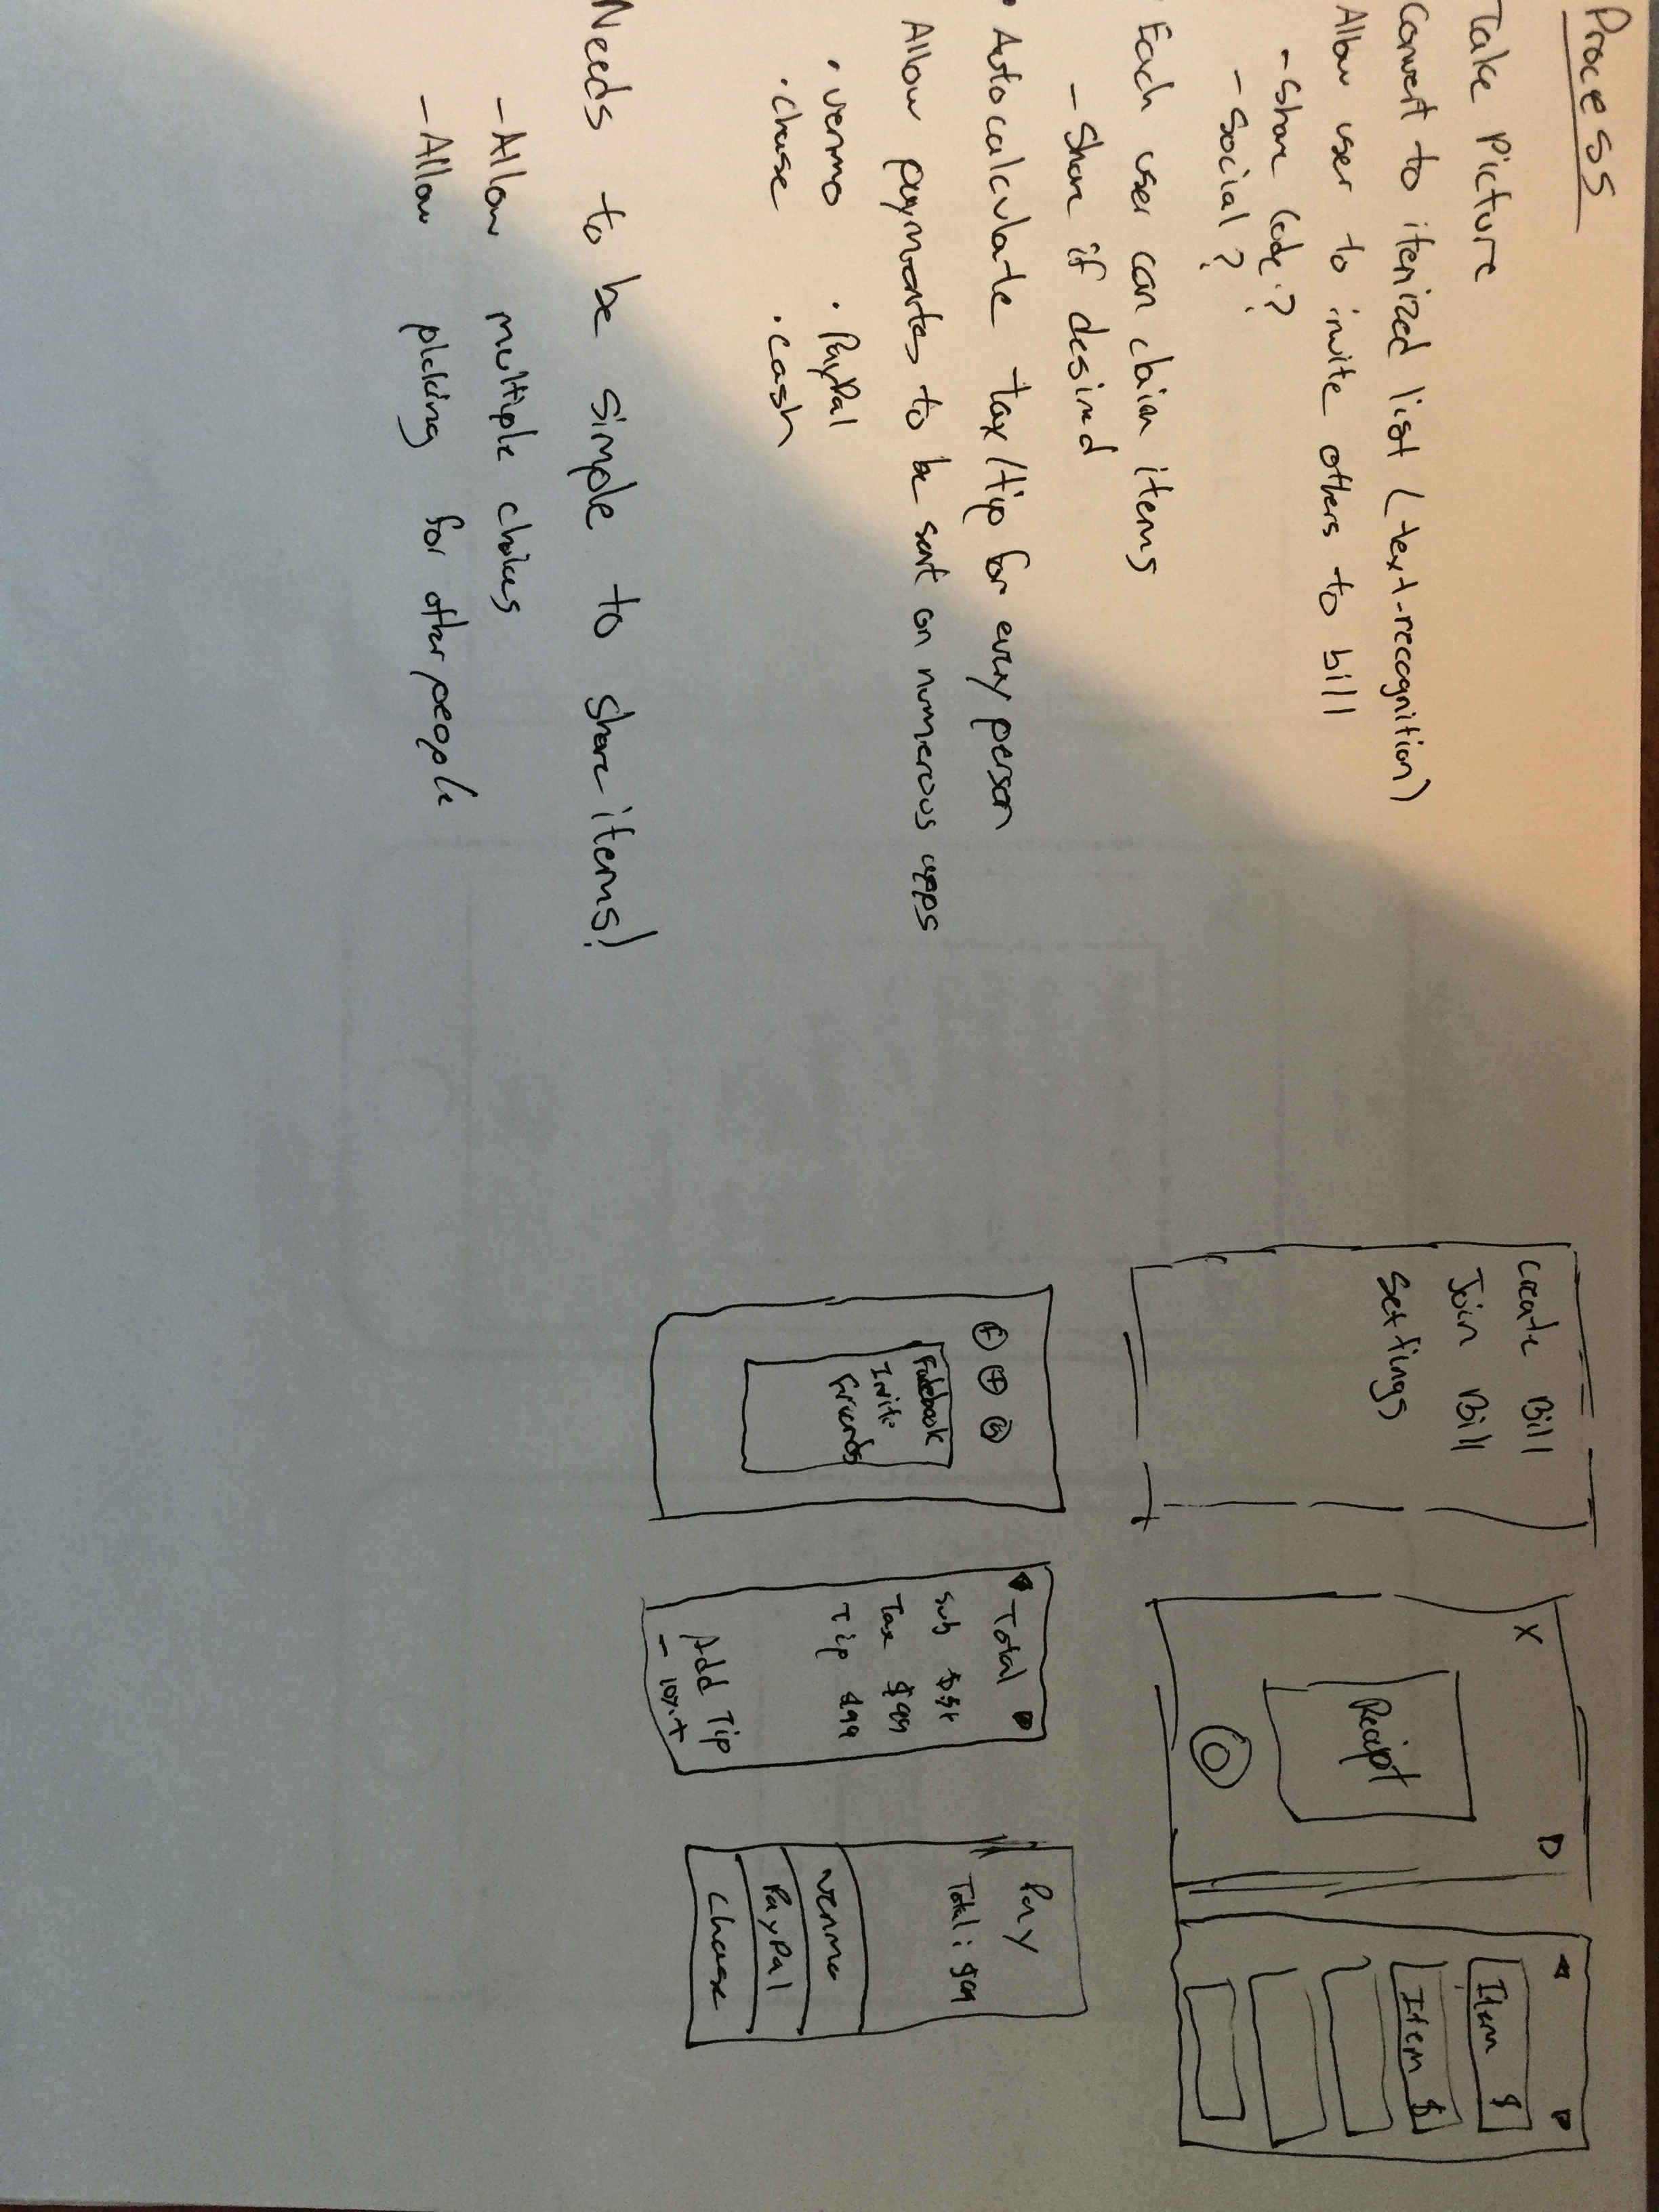 Process
Take Picture
Convert to itemized list (text-recognition)
Allow user to invite others to bill
- Share Code?
- Social?
• Each user can claim items
- Share if desired
• Autocalculate tax/tip for every person
Allow payments to be sent on numerous apps
• venmo • PayPal
• chase • cash
Needs to be simple to share items!
- Allow multiple choices
- Allow picking for other people
Create Bill
Join Bill
Settings
X
Receipt
Item $
Item $
f
Facebook
Invite
Friends
Total
Sub
Tax $99
Tip $99
Add Tip
- 10% +
Pay
Total: $99
venmo
PayPal
Chase